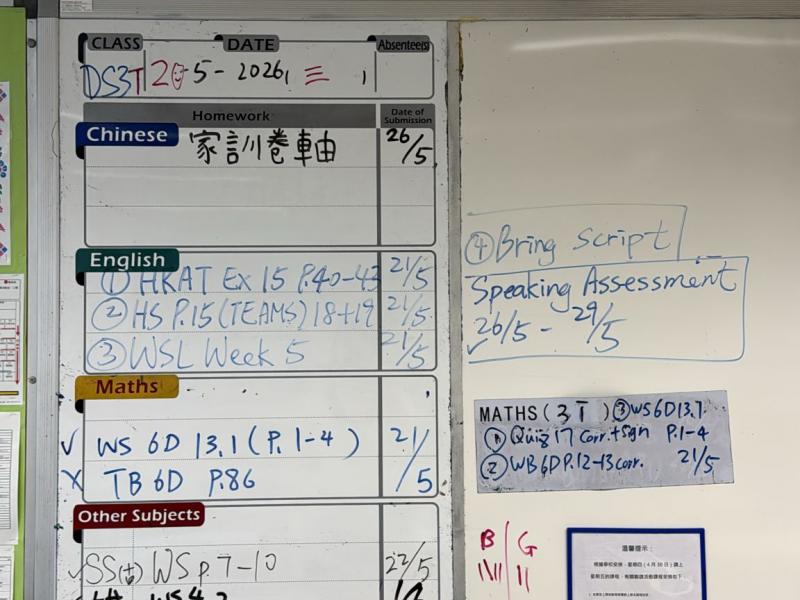 CLASS DATE Absentees
DS3T 20-5-2026, 三
Homework Date of Submission
Chinese 家訓卷軸 26/5
English
① HKAT Ex 15 P.40-43 21/5
② HS P.15 (TEAMS) 18+19 21/5
③ WSL Week 5 21/5
Maths
✓ WS 6D 13.1 (P.1-4) 21/5
X TB 6D P.86
Other Subjects
✓ SS(古) WS p.7-10 22/5
④ Bring Script
Speaking Assessment
26/5 - 29/5
✓
MATHS (3T) ③ WS6D13.1
① Quiz 17 corr.+sign P.1-4
② WB6D P.12-13 corr. 21/5
B G
溫馨提示：
根據學校安排，星期四（4月30日）請上
星期五的課程，有關觀課活動課程安排如下